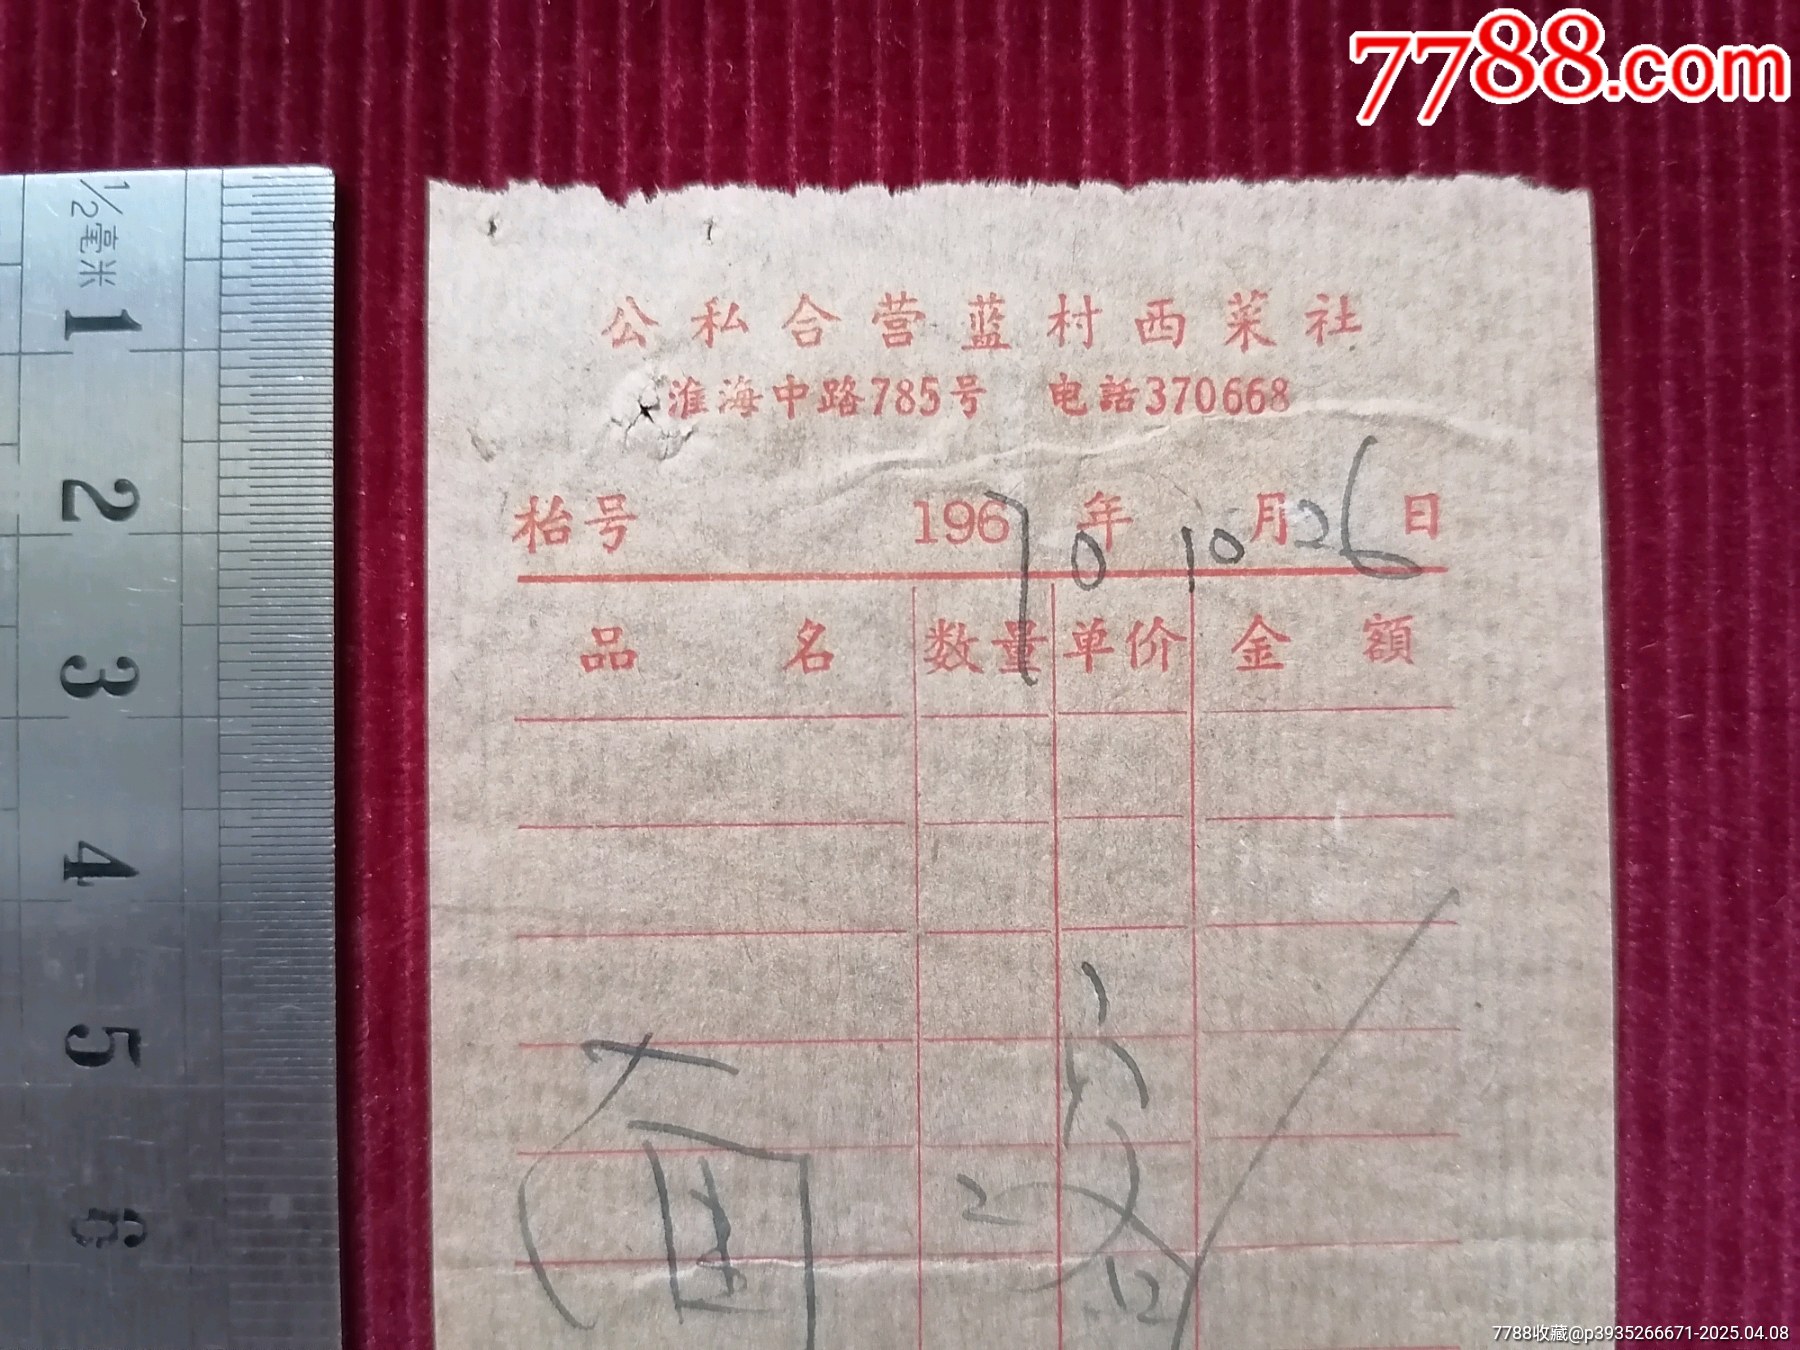 7788.com
1/2毫米
1
2
3
4
5
6
公私合营蓝村西菜社
淮海中路785号 电話370668
枱号 196 70年 10月26日
品名 数量 单价 金額
2
12
7788收藏@p3935266671-2025.04.08